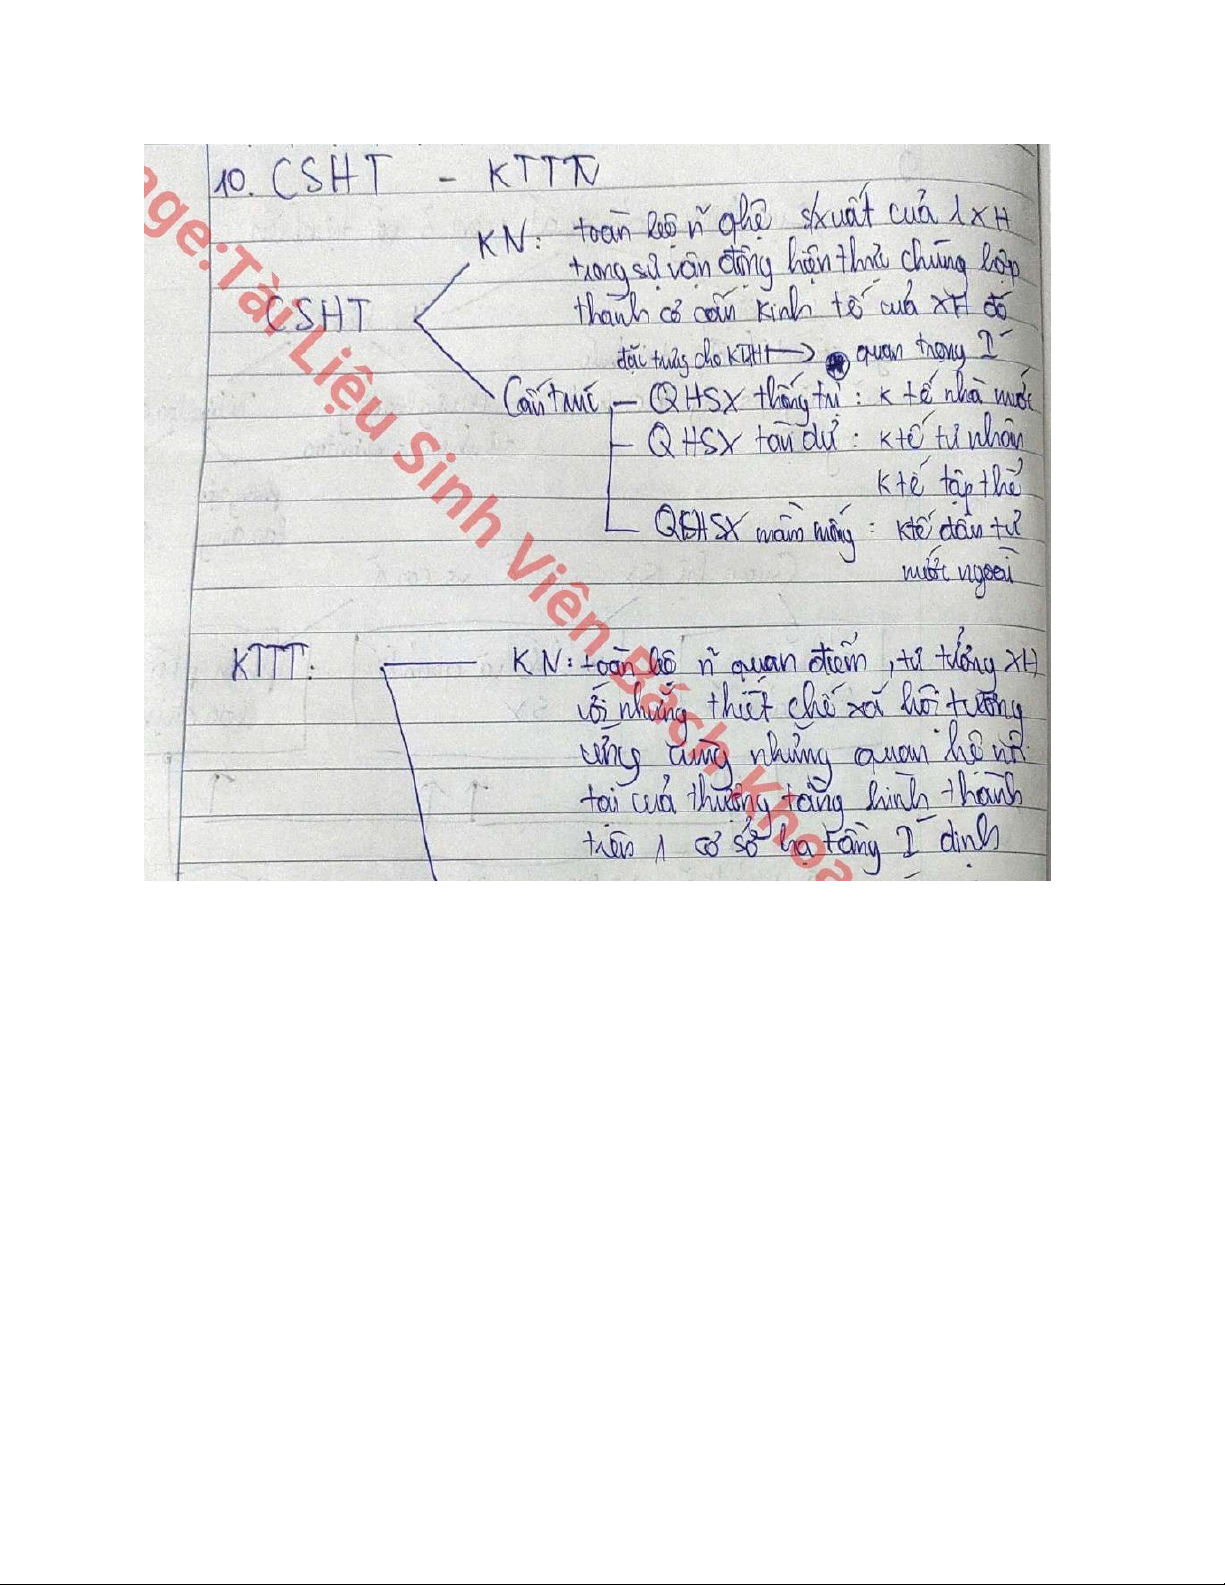 10. CSHT - KTTT
KN: toàn bộ ñ qhệ sxuất của 1 XH
trong sự vận động hiện thực chúng hợp
CSHT
thành cơ cấu kinh tế của XH đó
đặc trưng cho → quan trọng I
Cấu trúc - QHSX thống trị: k tế nhà nước
- QHSX tàn dư: ktế tư nhân
ktế tập thể
QHSX mầm mống: ktế đầu tư
nước ngoài
KTTT: KN: toàn bộ ñ quan điểm, tư tưởng XH
với những thiết chế xã hội tương
ứng cùng những quan hệ nội
tại của thượng tầng hình thành
trên 1 cơ sở hạ tầng I định
age:Tài Liệu Sinh Viên Bách Khoa